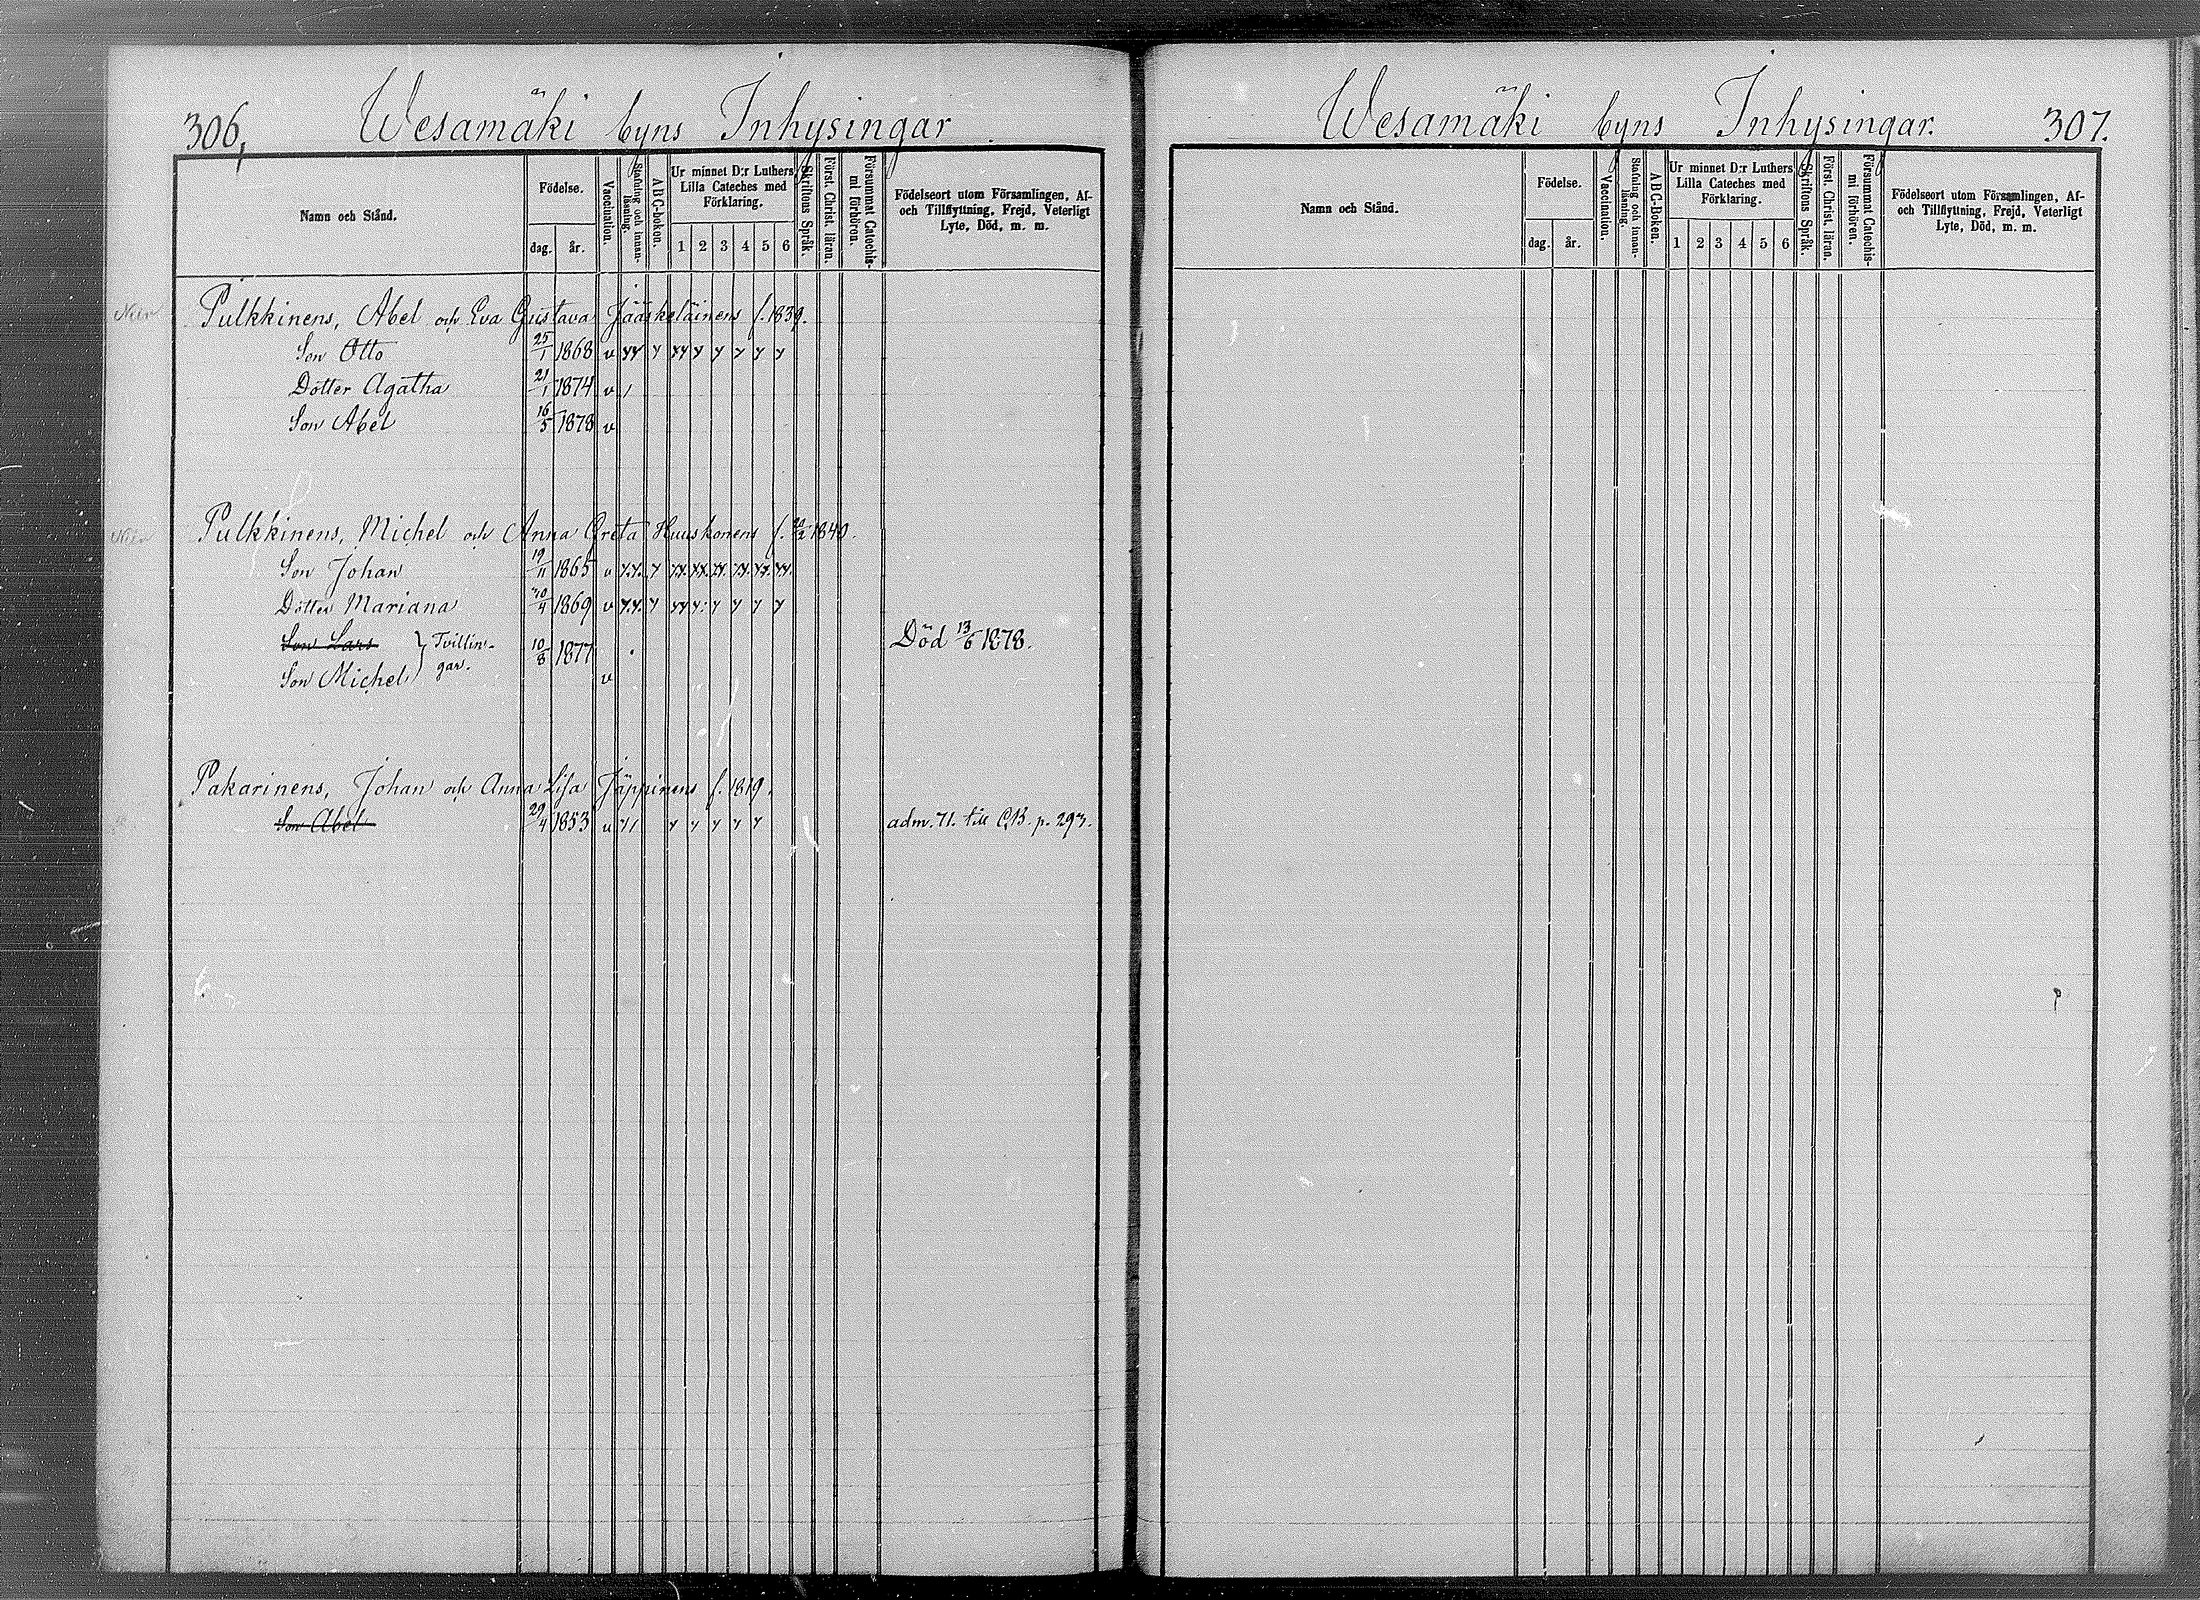 306, Wesamäki byns Inhysingar
Namn och Stånd.
Födelse.
dag. år.
Vaccination.
Stafning och innan-läsning.
A B C-boken.
Ur minnet D:r Luthers
Lilla Cateches med
Förklaring.
1 2 3 4 5 6
Skriftens Språk.
Först. Christ. läran.
Försummat Catechis-
mi förhören.
Födelseort utom Församlingen, Af-
och Tillflyttning, Frejd, Veterligt
Lyte, Död, m. m.
Pulkkinens, Abel och Eva Gustava Jääskeläinens f. 1839.
Son Otto 25/1 1868 v
Dotter Agatha 21/1 1874 v
Son Abel 16/5 1878 v
Pulkkinens, Michel och Anna Greta Huuskonens f. 1840.
Son Johan 19/11 1865 v
Dotter Mariana 1869 v
Son Lars } Tvillin- 10/8 1877 Död 13/6 1878.
Son Michel } gar. v
Pakarinens, Johan och Anna Lisa Jäppinens f. 1819.
Son Abel 29/4 1853 v adm. 71. till C.B. p. 293.
Wesamäki byns Inhysingar. 307.
Namn och Stånd.
Födelse.
dag. år.
Vaccination.
Stafning och innan-
läsning.
A B C-Boken.
Ur minnet D:r Luthers
Lilla Cateches med
Förklaring.
1 2 3 4 5 6
Skriftens Språk.
Först. Christ. läran.
Försummat Catechis-
mi förhören.
Födelseort utom Församlingen, Af-
och Tillflyttning, Frejd, Veterligt
Lyte, Död, m. m.